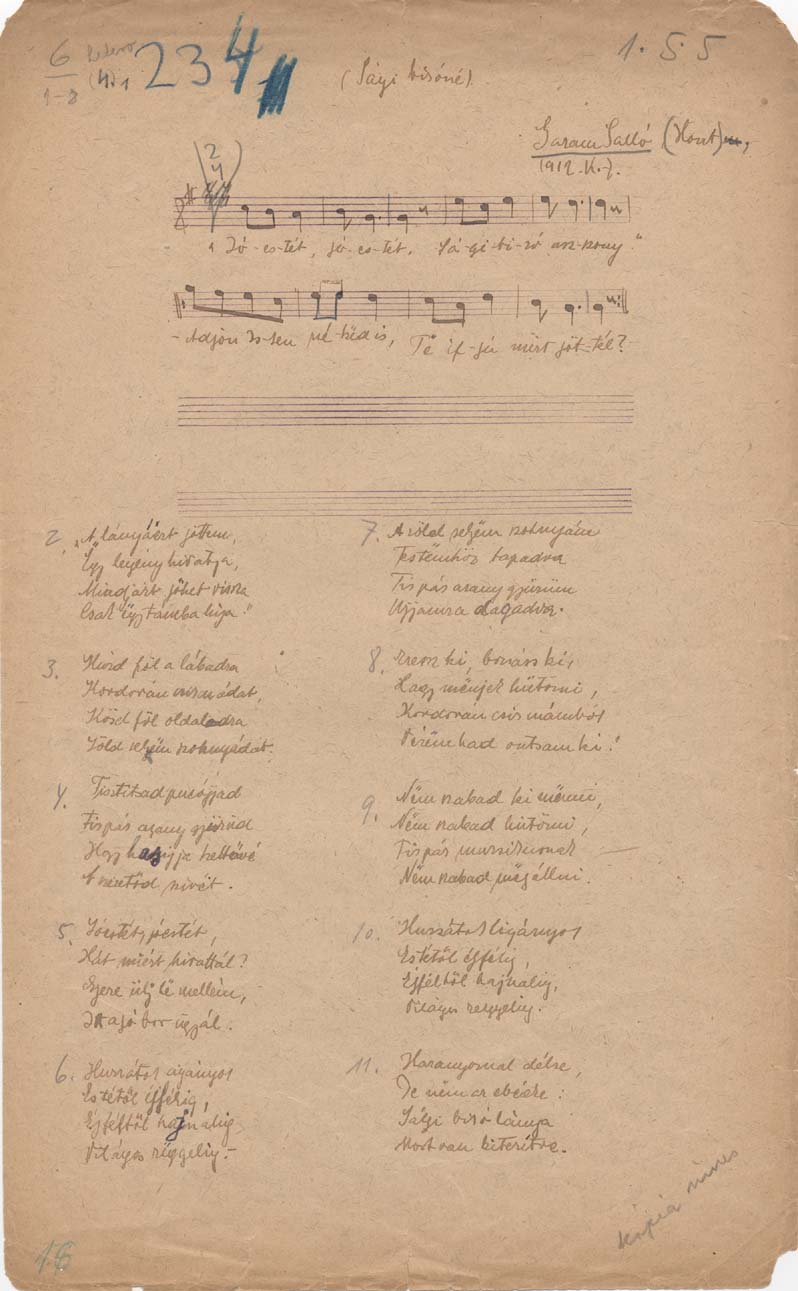 6
1-8
(4).1
234
1.55
(Sági biróné)
Garam Salló (Hont),
1912. K. Z.
2
4
1 Jó-es-tét, jó-es-tét, Sá-gi-bi-ró asz-szony!"
-Adjon Is-ten né-ked is, Te if-ju miért jöt-tél?-
2. „A lányáért jöttem,
Egy legény hivatja,
Mindjárt jöhet vissza
Csak egy táncba hija."
3. Húzd föl a lábadra
Kordován csizmádat,
Kösd föl oldaladra
Zöld selyëm szoknyádat.
4. Tisztitsad pucójjad
Tizpár arany gyürüd
Hogy hasijja kettévé
A szeretőd szivét.
5. Jóestét, jóestét,
Hát miért hivattál?
Gyere ülj lë mellém,
Itt a jó bor igyál.
6. Huzzátok cigányok
Estétől éjfélig,
Éjféltől hajnalig
Világos rëggelig.-
7. A zöld selyëm szoknyám
Testëmhöz tapadva
Tizpár arany gyürüm
Ujjamra dagadva.
8. Eressz ki, bocsáss ki,
Hagy mënjek hütözni,
Kordován csizmámból
Vérëm had ontsam ki!
9. Nëm szabad ki mënni,
Nëm szabad hütözni,
Tizpár muzsikusnak
Nëm szabad mëgállni.
10. Huzzátok cigányok
Estétől éjfélig,
Éjféltől hajnalig,
Világos reggelig.
11. Harangoznak délre,
De nëm az ebédre:
Sági biró lánya
Most van kiterítve.
kópia nincs
16